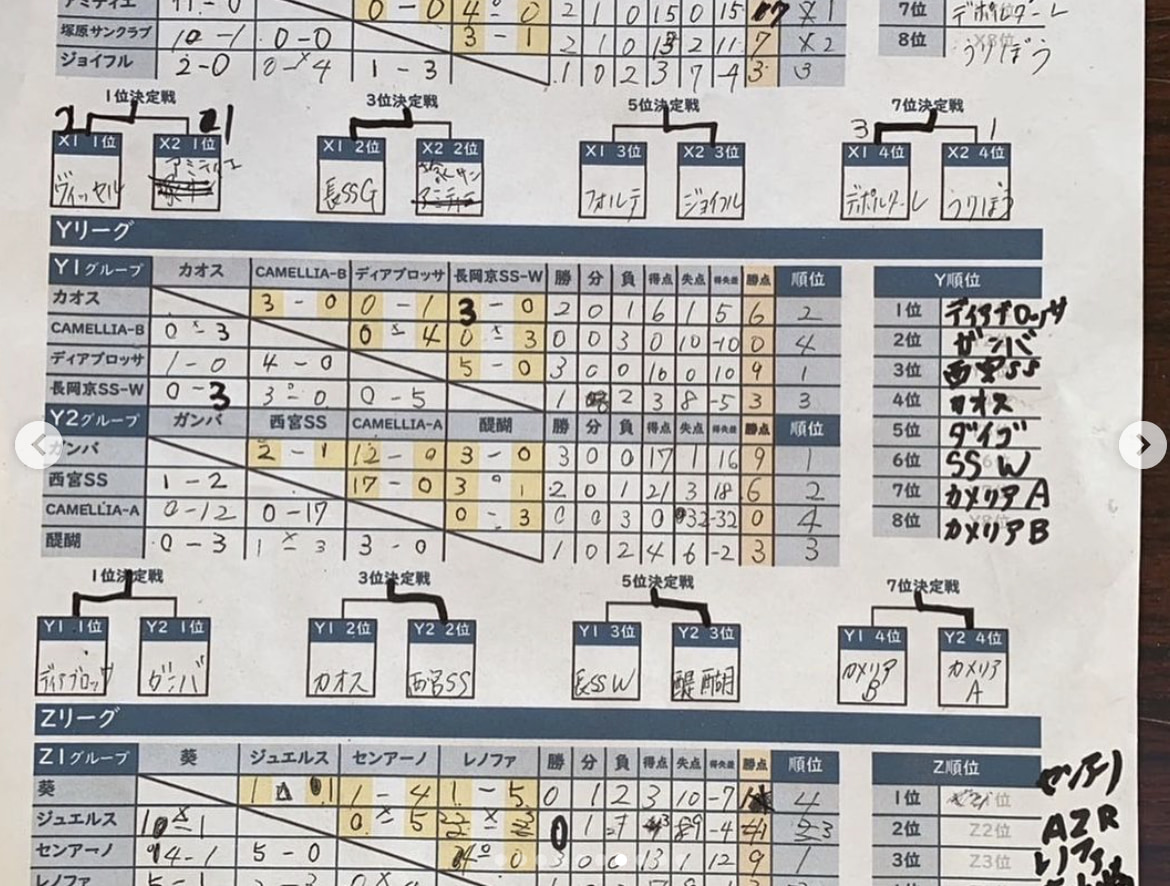 アミティエ 0 - 0 4 - 0 2 1 0 15 0 15
塚原サンクラブ 10 - 1 0 - 0 3 - 1 2 1 0 13 2 11 7 2
ジョイフル 2 - 0 0 × 4 1 - 3 1 0 2 3 7 -4 3 3
7位 デポルターレ
8位 うりぼう
1位決定戦 3位決定戦 5位決定戦 7位決定戦
2 1 3 1
X1 1位 X2 1位 X1 2位 X2 2位 X1 3位 X2 3位 X1 4位 X2 4位
ヴィッセル アミティエ 長SSG フォルテ ジョイフル デポルターレ うりぼう
Yリーグ
Y1グループ カオス CAMELLIA-B ディアブロッサ 長岡京SS-W 勝 分 負 得点 失点 得失差 勝点 順位
カオス 3 - 0 0 - 1 3 - 0 2 0 1 6 1 5 6 2
CAMELLIA-B 0 × 3 0 × 4 0 × 3 0 0 3 0 10 -10 0 4
ディアブロッサ 1 - 0 4 - 0 5 - 0 3 0 0 10 0 10 9 1
長岡京SS-W 0 - 3 3 - 0 0 - 5 1 2 3 8 -5 3 3
Y2グループ ガンバ 西宮SS CAMELLIA-A 醍醐 勝 分 負 得点 失点 得失差 勝点 順位
ガンバ 2 - 1 12 - 0 3 - 0 3 0 0 17 1 16 9 1
西宮SS 1 - 2 17 - 0 3 - 1 2 0 1 21 3 18 6 2
CAMELLIA-A 0 - 12 0 - 17 0 - 3 0 0 3 0 32 -32 0 4
醍醐 0 - 3 1 × 3 3 - 0 1 0 2 4 6 -2 3 3
Y順位
1位 ディアブロッサ
2位 ガンバ
3位 西宮SS
4位 カオス
5位 ダイゴ
6位 SSW
7位 カメリアA
8位 カメリアB
1位決定戦 3位決定戦 5位決定戦 7位決定戦
Y1 1位 Y2 1位 Y1 2位 Y2 2位 Y1 3位 Y2 3位 Y1 4位 Y2 4位
ディアブロッサ ガンバ カオス 西宮SS 長SSW 醍醐 カメリアB カメリアA
Zリーグ
Z1グループ 葵 ジュエルス センアーノ レノファ 勝 分 負 得点 失点 得失差 勝点 順位
葵 1 △ 1 1 - 4 1 - 5 0 1 2 3 10 -7 4
ジュエルス 0 × 5 0 1 -4 3
センアーノ 4 - 1 5 - 0 4 - 0 3 0 0 13 1 12 9 1
レノファ 5 - 1
Z順位
1位
2位 Z2位 AZR
3位 Z3位 レノファ